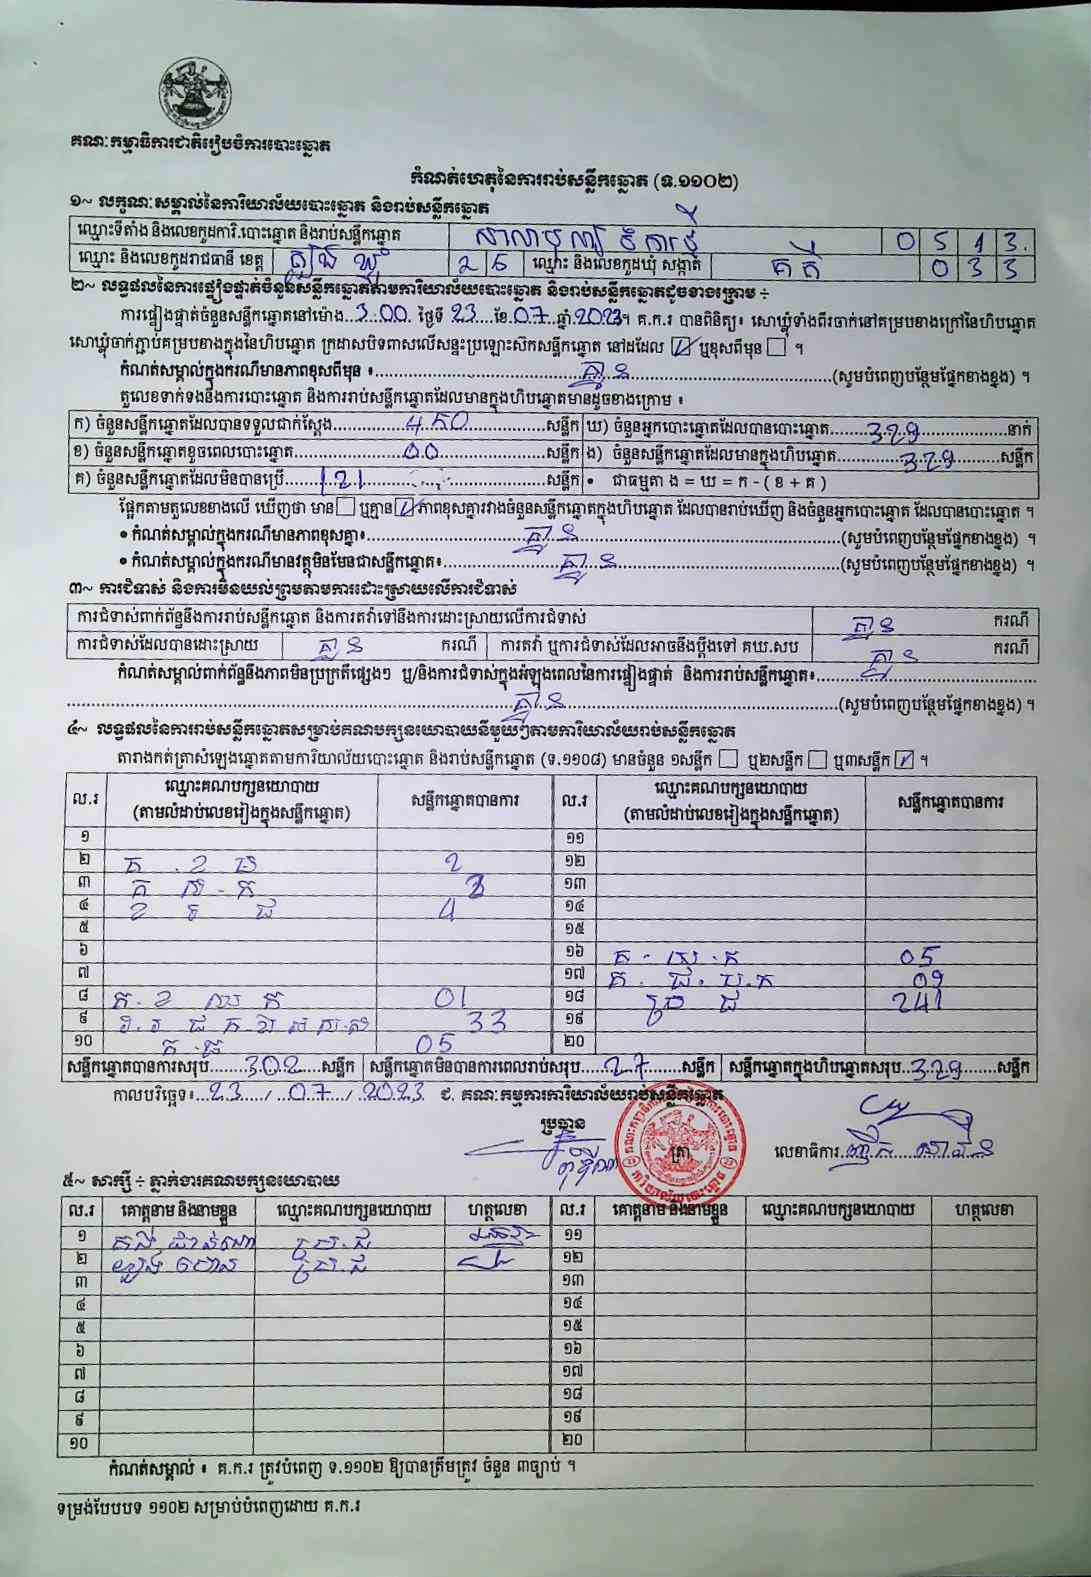 គណៈកម្មាធិការជាតិរៀបចំការបោះឆ្នោត
កំណត់ហេតុនៃការរាប់សន្លឹកឆ្នោត (ទ.១១០២)
១~ លក្ខណៈសម្គាល់នៃការិយាល័យបោះឆ្នោត និងរាប់សន្លឹកឆ្នោត
ឈ្មោះទីតាំង និងលេខកូដការិ.បោះឆ្នោត និងរាប់សន្លឹកឆ្នោត 0 5 1 3
ឈ្មោះ និងលេខកូដរាជធានី ខេត្ត ត្បូងឃ្មុំ 2 5 ឈ្មោះ និងលេខកូដឃុំ សង្កាត់ គគីរ 0 3 3
២~ លទ្ធផលនៃការផ្ទៀងផ្ទាត់ចំនួនសន្លឹកឆ្នោតតាមការិយាល័យបោះឆ្នោត និងរាប់សន្លឹកឆ្នោតដូចខាងក្រោម ÷
ការផ្ទៀងផ្ទាត់ចំនួនសន្លឹកឆ្នោតនៅម៉ោង 3:00 ថ្ងៃទី 23 ខែ 07 ឆ្នាំ 2023 ។ គ.ក.រ បានពិនិត្យ៖ សោឃ្លុំទាំងពីរចាក់នៅគម្របខាងក្រៅនៃហិបឆ្នោត
សោឃ្លុំចាក់ភ្ជាប់គម្របខាងក្នុងនៃហិបឆ្នោត ក្រដាសបិទពាសលើសន្ទះប្រឡោះស៊កសន្លឹកឆ្នោត នៅដដែល ☑ ឬខុសពីមុន ☐ ។
កំណត់សម្គាល់ក្នុងករណីមានភាពខុសពីមុន ៖ គ្មាន (សូមបំពេញបន្ថែមផ្នែកខាងខ្នង) ។
តួលេខទាក់ទងនឹងការបោះឆ្នោត និងការរាប់សន្លឹកឆ្នោតដែលមានក្នុងហិបឆ្នោតមានដូចខាងក្រោម ៖
ក) ចំនួនសន្លឹកឆ្នោតដែលបានទទួលជាក់ស្តែង 450 សន្លឹក ឃ) ចំនួនអ្នកបោះឆ្នោតដែលបានបោះឆ្នោត 329 នាក់
ខ) ចំនួនសន្លឹកឆ្នោតខូចពេលបោះឆ្នោត 00 សន្លឹក ង) ចំនួនសន្លឹកឆ្នោតដែលមានក្នុងហិបឆ្នោត 329 សន្លឹក
គ) ចំនួនសន្លឹកឆ្នោតដែលមិនបានប្រើ 121 សន្លឹក • ជាធម្មតា ង = ឃ = ក - ( ខ + គ )
ផ្អែកតាមតួលេខខាងលើ ឃើញថា មាន ☐ ឬគ្មាន ☑ ភាពខុសគ្នារវាងចំនួនសន្លឹកឆ្នោតក្នុងហិបឆ្នោត ដែលបានរាប់ឃើញ និងចំនួនអ្នកបោះឆ្នោត ដែលបានបោះឆ្នោត ។
• កំណត់សម្គាល់ក្នុងករណីមានភាពខុសគ្នា៖ គ្មាន (សូមបំពេញបន្ថែមផ្នែកខាងខ្នង) ។
• កំណត់សម្គាល់ក្នុងករណីមានវត្ថុមិនមែនជាសន្លឹកឆ្នោត៖ គ្មាន (សូមបំពេញបន្ថែមផ្នែកខាងខ្នង) ។
៣~ ការជំទាស់ និងការមិនយល់ព្រមតាមការដោះស្រាយលើការជំទាស់
ការជំទាស់ពាក់ព័ន្ធនឹងការរាប់សន្លឹកឆ្នោត និងការតវ៉ាទៅនឹងការដោះស្រាយលើការជំទាស់ គ្មាន ករណី
ការជំទាស់ដែលបានដោះស្រាយ គ្មាន ករណី ការតវ៉ា ឬការជំទាស់ដែលអាចនឹងប្តឹងទៅ គឃ.សប គ្មាន ករណី
កំណត់សម្គាល់ពាក់ព័ន្ធនឹងភាពមិនប្រក្រតីផ្សេងៗ ឬ/និងការជំទាស់ក្នុងអំឡុងពេលនៃការផ្ទៀងផ្ទាត់ និងការរាប់សន្លឹកឆ្នោត៖
គ្មាន (សូមបំពេញបន្ថែមផ្នែកខាងខ្នង) ។
៤~ លទ្ធផលនៃការរាប់សន្លឹកឆ្នោតសម្រាប់គណបក្សនយោបាយនីមួយៗតាមការិយាល័យរាប់សន្លឹកឆ្នោត
តារាងកត់ត្រាសំឡេងឆ្នោតតាមការិយាល័យបោះឆ្នោត និងរាប់សន្លឹកឆ្នោត (ទ.១១០៨) មានចំនួន ១សន្លឹក ☐ ឬ២សន្លឹក ☐ ឬ៣សន្លឹក ☑ ។
ល.រ ឈ្មោះគណបក្សនយោបាយ (តាមលំដាប់លេខរៀងក្នុងសន្លឹកឆ្នោត) សន្លឹកឆ្នោតបានការ ល.រ ឈ្មោះគណបក្សនយោបាយ (តាមលំដាប់លេខរៀងក្នុងសន្លឹកឆ្នោត) សន្លឹកឆ្នោតបានការ
១ ១១
២ គ.ខ ម 2 ១២
៣ គ ស.ក 3 ១៣
៤ ខ ជ 4 ១៤
៥ ១៥
៦ ១៦ គ. ក 05
៧ ១៧ គ. ជ. ប.ក 09
៨ គ.ខ ឈ ក 01 ១៨ ប្រ ជ 241
៩ 33 ១៩
១០ គ.ធ 05 ២០
សន្លឹកឆ្នោតបានការសរុប 302 សន្លឹក សន្លឹកឆ្នោតមិនបានការពេលរាប់សរុប 27 សន្លឹក សន្លឹកឆ្នោតក្នុងហិបឆ្នោតសរុប 329 សន្លឹក
កាលបរិច្ឆេទ៖ 23 / 07 / 2023 ជ. គណៈកម្មការការិយាល័យរាប់សន្លឹកឆ្នោត
ប្រធាន
ត្រា
លេខាធិការ
៥~ សាក្សី ÷ ភ្នាក់ងារគណបក្សនយោបាយ
ល.រ គោត្តនាម និងនាមខ្លួន ឈ្មោះគណបក្សនយោបាយ ហត្ថលេខា ល.រ គោត្តនាម និងនាមខ្លួន ឈ្មោះគណបក្សនយោបាយ ហត្ថលេខា
១ ប្រ.ជ ១១
២ ប្រ.ជ ១២
៣ ១៣
៤ ១៤
៥ ១៥
៦ ១៦
៧ ១៧
៨ ១៨
៩ ១៩
១០ ២០
កំណត់សម្គាល់ ៖ គ.ក.រ ត្រូវបំពេញ ទ.១១០២ ឱ្យបានត្រឹមត្រូវ ចំនួន ៣ច្បាប់ ។
ទម្រង់បែបបទ ១១០២ សម្រាប់បំពេញដោយ គ.ក.រ